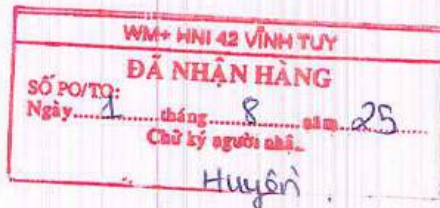 WM+ HNI 42 VĨNH TUY
ĐÃ NHẬN HÀNG
SỐ PO/TO:
Ngày.....1.....tháng.....8.....năm.....25.....
Chữ ký người nhận
Huyền